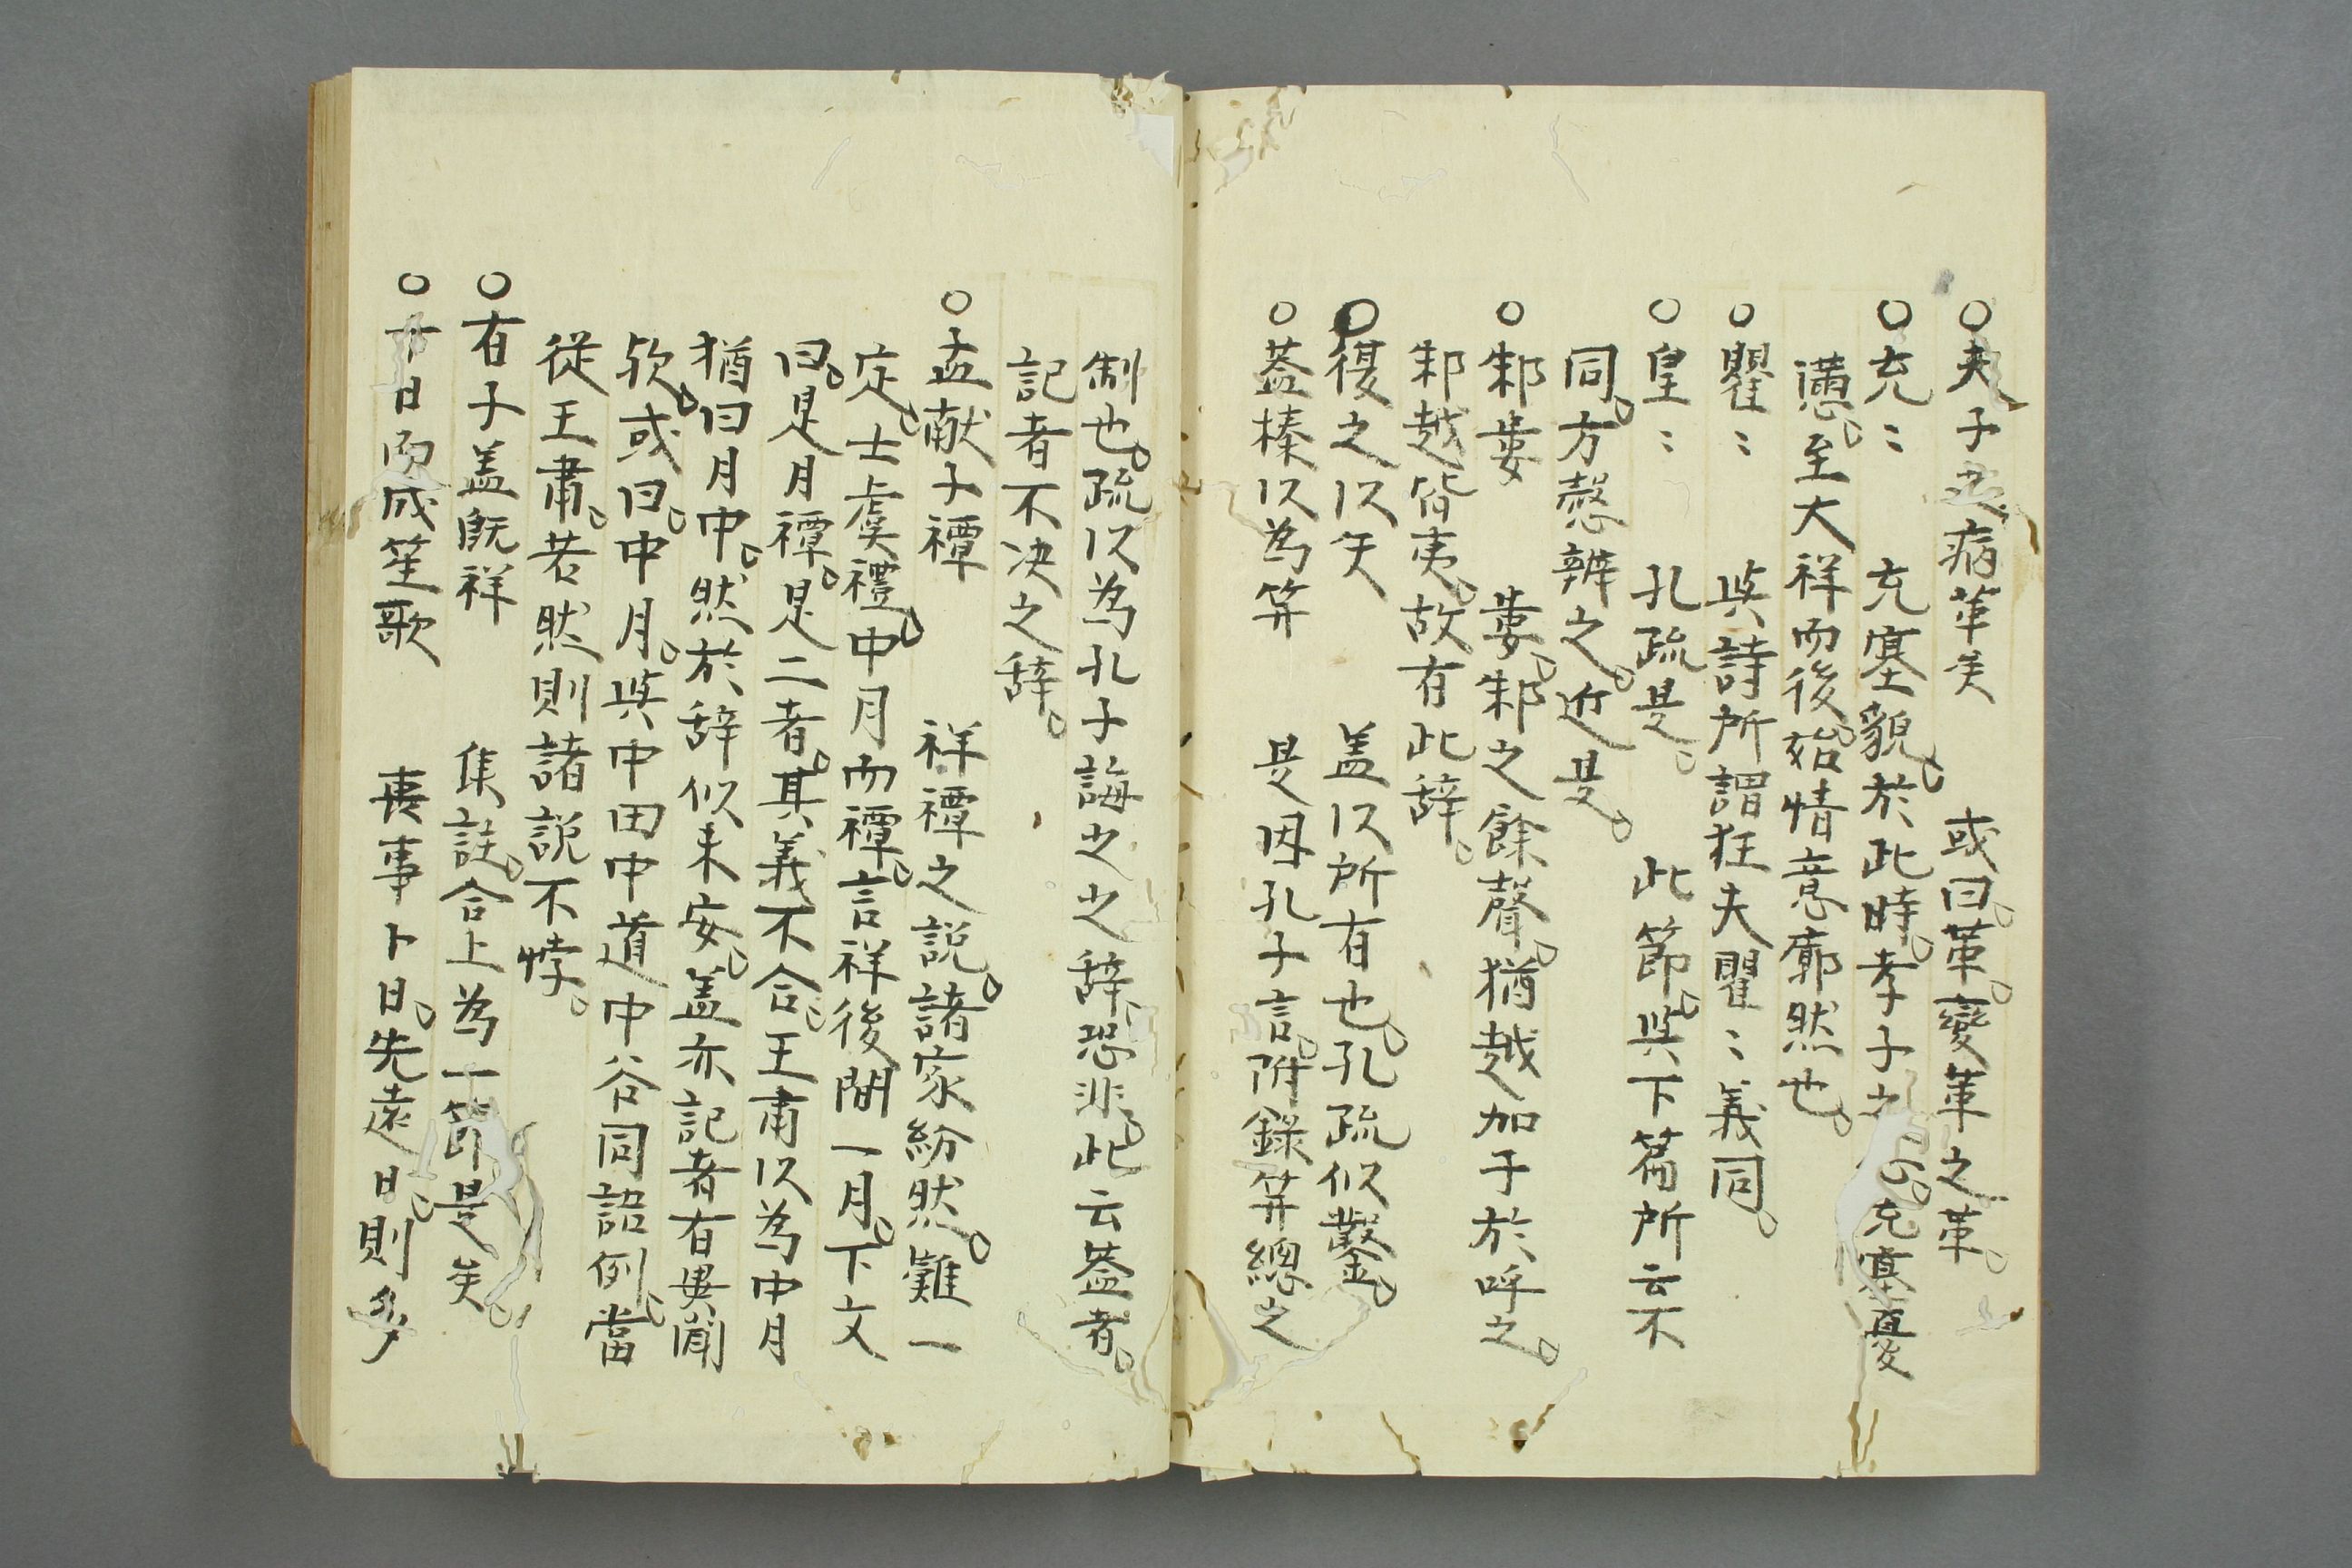 ○夫子之病革矣　或曰。革。變革之革。
○充〻　充塞貌。於此時。孝子之心。充塞憂
懣。至大祥而後。始情意廓然也。
○瞿〻　與詩所謂狂夫瞿〻義同。
○皇〻　孔疏是。　此節。與下篇所云不
同。方愨辨之。近是。
○邾婁　婁。邾之餘聲。猶越加于於呼之。
邾越皆夷。故有此辞。
○復之以矢　盖以所有也。孔疏似鑿。
○盖榛以為笄　是因孔子言。附錄笄總之
制也。疏以為孔子誨之之辞。恐非。此云盖者。
記者不决之辞。
○孟献子禫　祥禫之説。諸家紛然。難一
定。士虞禮。中月而禫。言祥後間一月。下文
曰。是月禫。是二者。其義不合。王肅以為中月
猶曰月中。然於辞似未安。盖亦記者有異聞
欤。或曰。中月。與中田中道中谷同語例。當
從王肅。若然則諸説不悖。
○有子盖既祥　集註。合上為一節是矣
○十日而成笙歌　喪事卜日。先遠日。則多